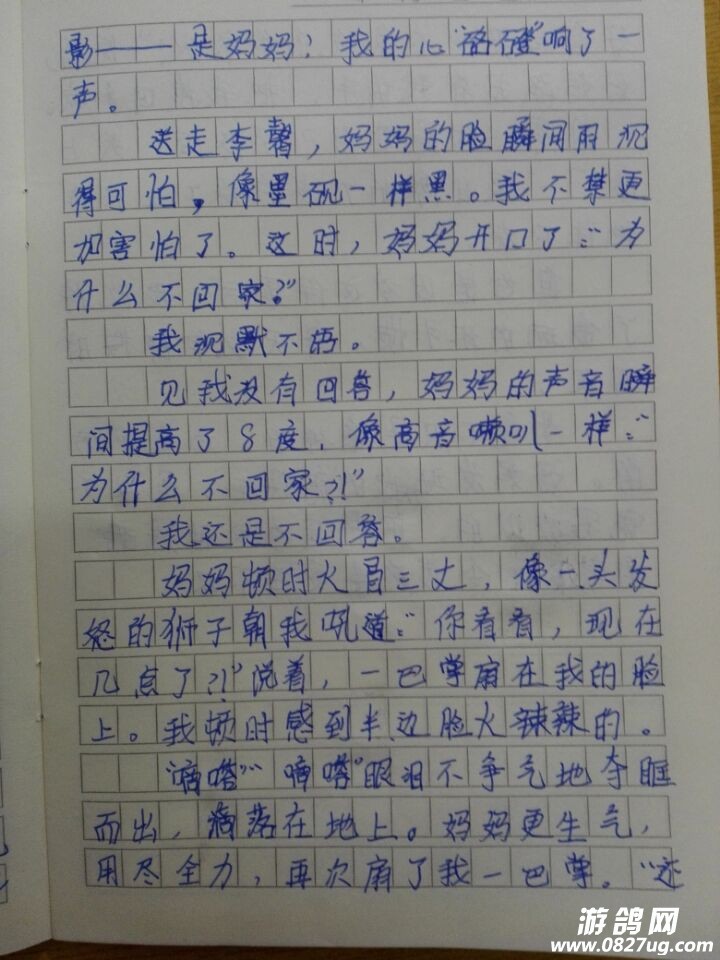 影——是妈妈！我的心“硌磴”响了一
声。
送走李馨，妈妈的脸瞬间阴沉
得可怕，像墨砚一样黑。我不禁更
加害怕了。这时，妈妈开口了：“为
什么不回家？”
我沉默不语。
见我没有回答，妈妈的声音瞬
间提高了8度，像高音喇叭一样：“
为什么不回家？！”
我还是不回答。
妈妈顿时火冒三丈，像一头发
怒的狮子朝我吼道：“你看看，现在
几点了？！”说着，一巴掌扇在我的脸
上。我顿时感到半边脸火辣辣的。
“嘀嗒”“嘀嗒”眼泪不争气地夺眶
而出，滴落在地上。妈妈更生气，
用尽全力，再次扇了我一巴掌。“还
游鸽网
www.0827ug.com